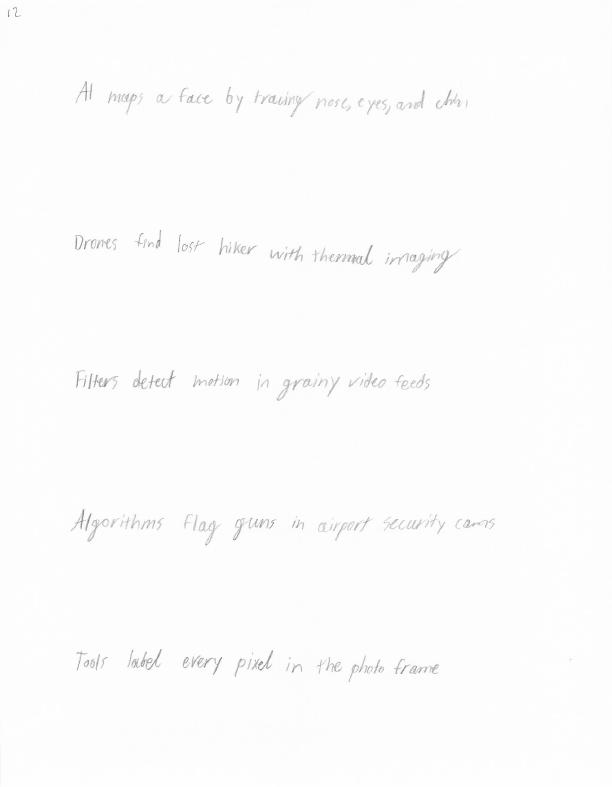 12
AI maps a face by tracing nose, eyes, and chin
Drones find lost hiker with thermal imaging
Filters detect motion in grainy video feeds
Algorithms flag guns in airport security cams
Tools label every pixel in the photo frame